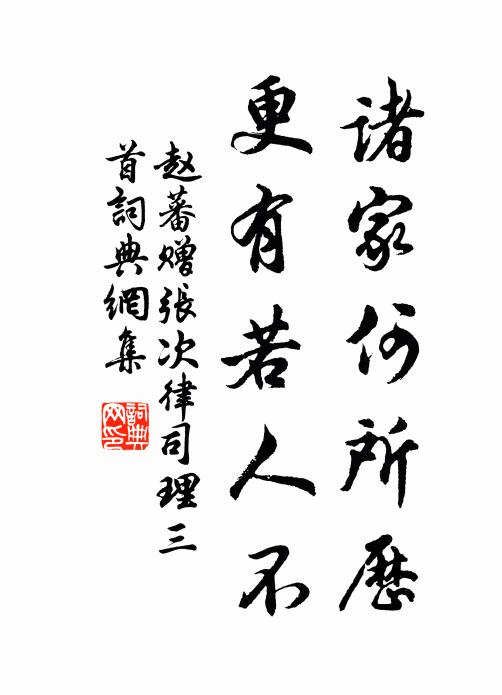 諸家何所歷
更有若人不
赵蕃贈張次律司理三
首詞典網集
詞典
网印